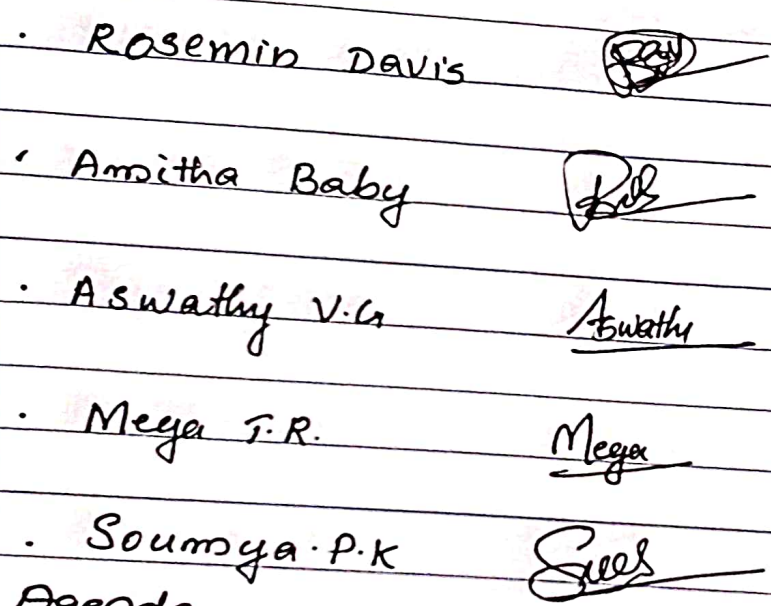 . Rosemin Davis
. Amitha Baby
. Aswathy V.G Aswathy
. Mega T.R. Mega
. Soumya.P.K
Agenda